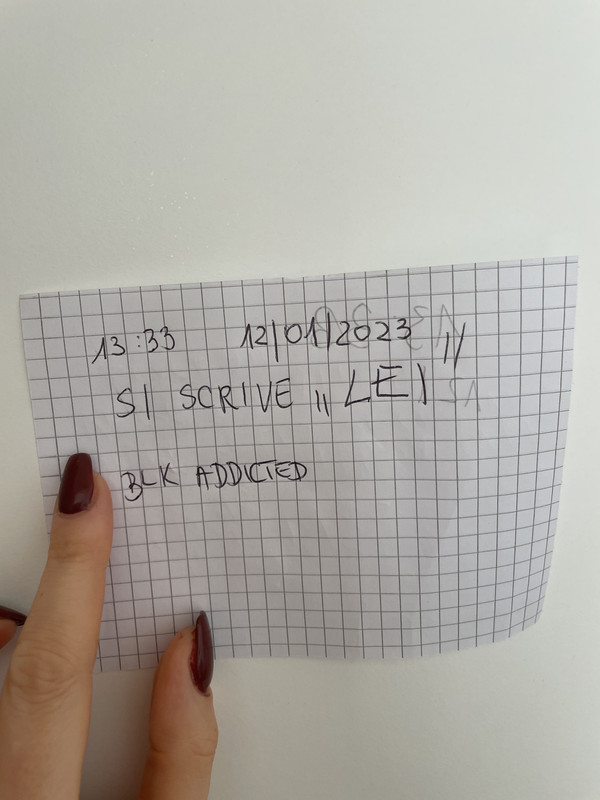 13:33 12/01/2023
SI SCRIVE „LEI"
BLK ADDICTED